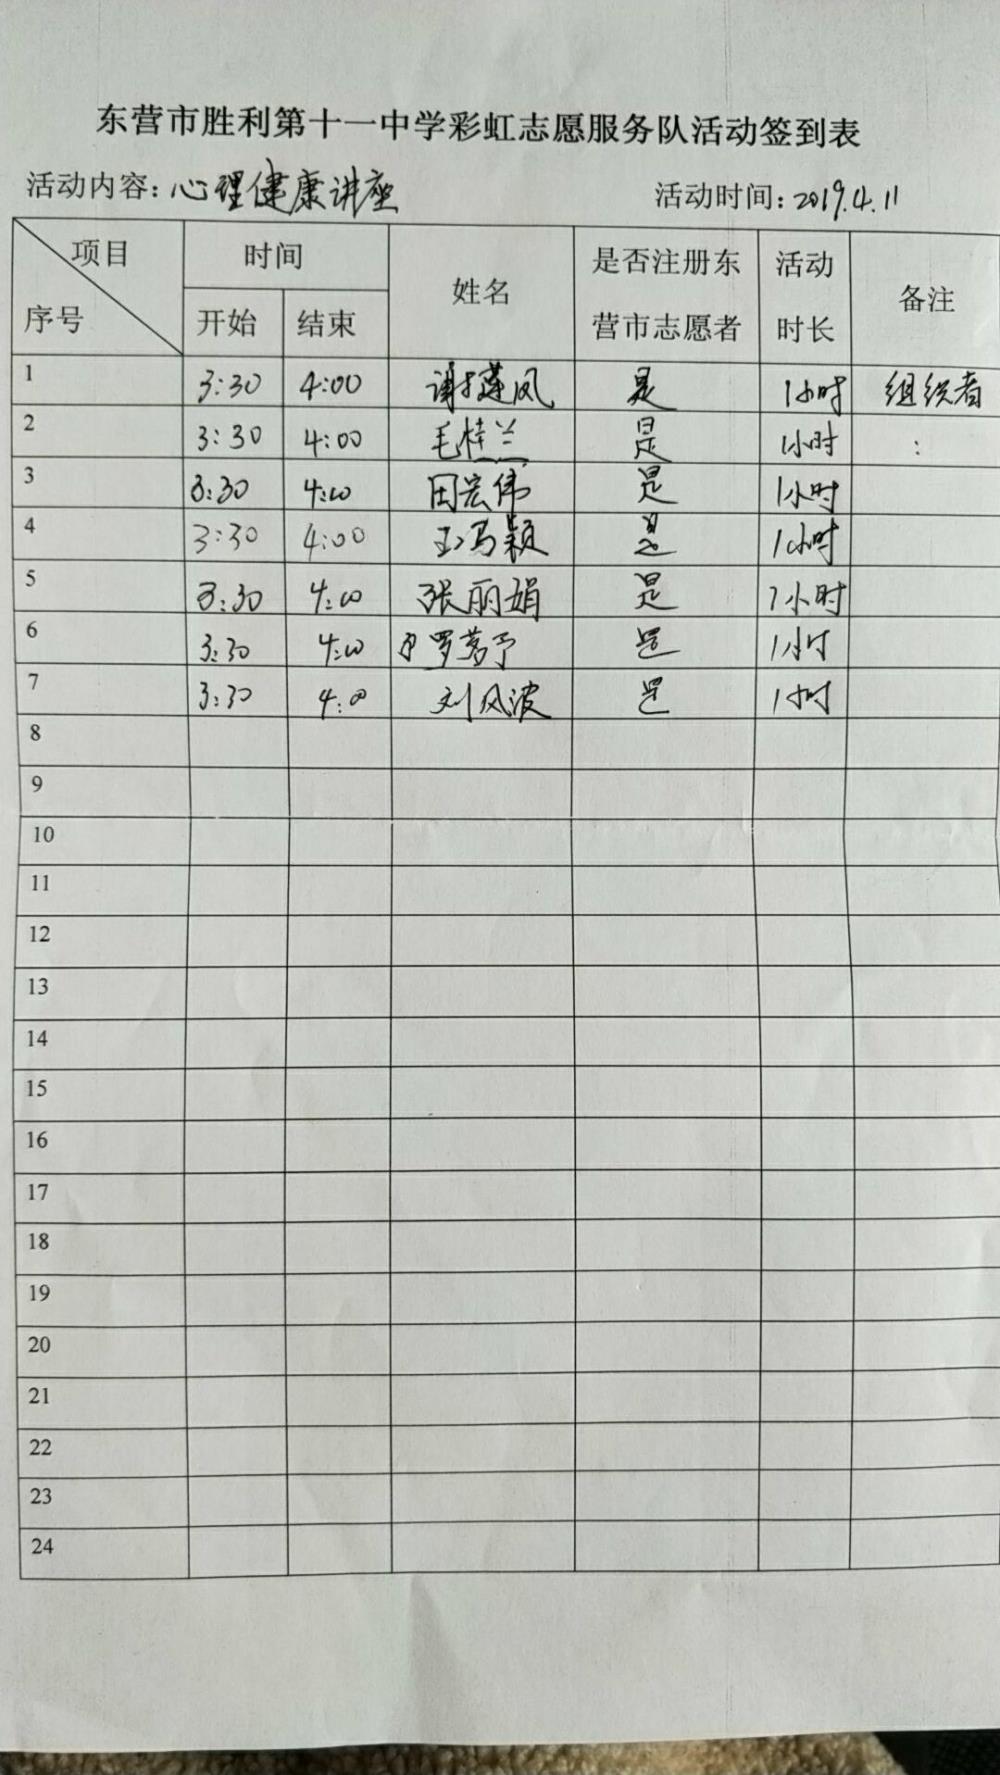 东营市胜利第十一中学彩虹志愿服务队活动签到表
活动内容：心理健康讲座 活动时间：2019.4.11
项目 序号 时间 开始 结束 姓名 是否注册东营市志愿者 活动时长 备注
1 3:30 4:00 谢莲凤 是 1小时 组织者
2 3:30 4:00 毛桂兰 是 1小时 :
3 3:30 4:00 田宏伟 是 1小时
4 3:30 4:00 颖 是 1小时
5 3:30 4:00 张丽娟 是 1小时
6 3:30 4:00 罗 予 是 1小时
7 3:30 4:00 刘风波 是 1小时
8
9
10
11
12
13
14
15
16
17
18
19
20
21
22
23
24